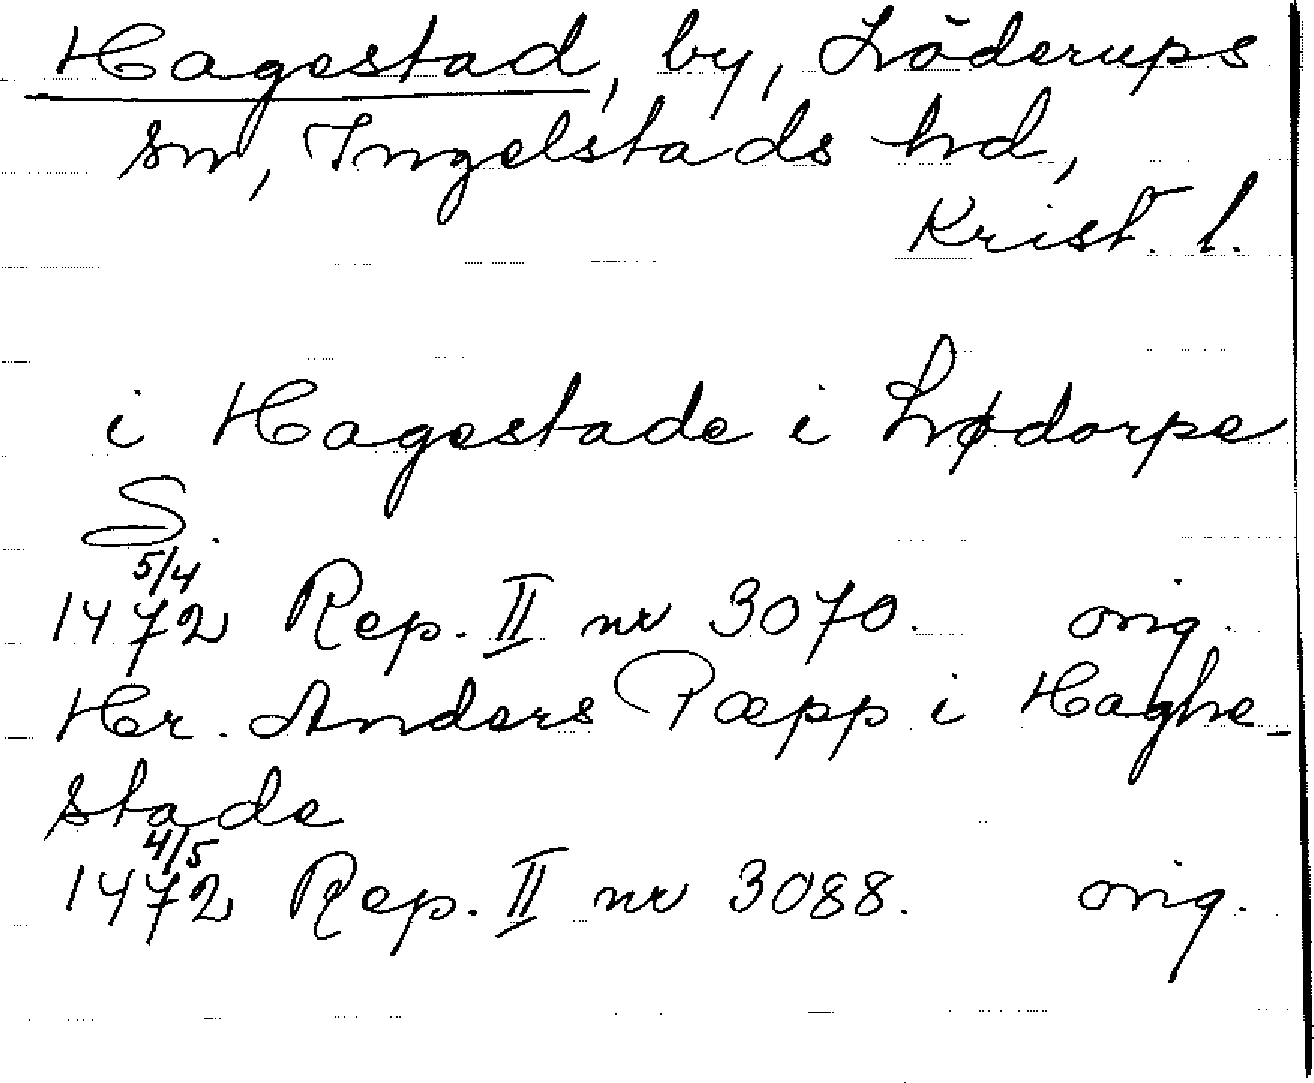 Hagestad, by, Löderups
sn, Ingelstads hd,
Krist. l.
i Hagestade i Lødorpe
S.
5/4
1472 Rep. II nr 3070. orig.
Hr. Anders Pæpp i Haghe-
stade
4/5
1472 Rep. II nr 3088. orig.